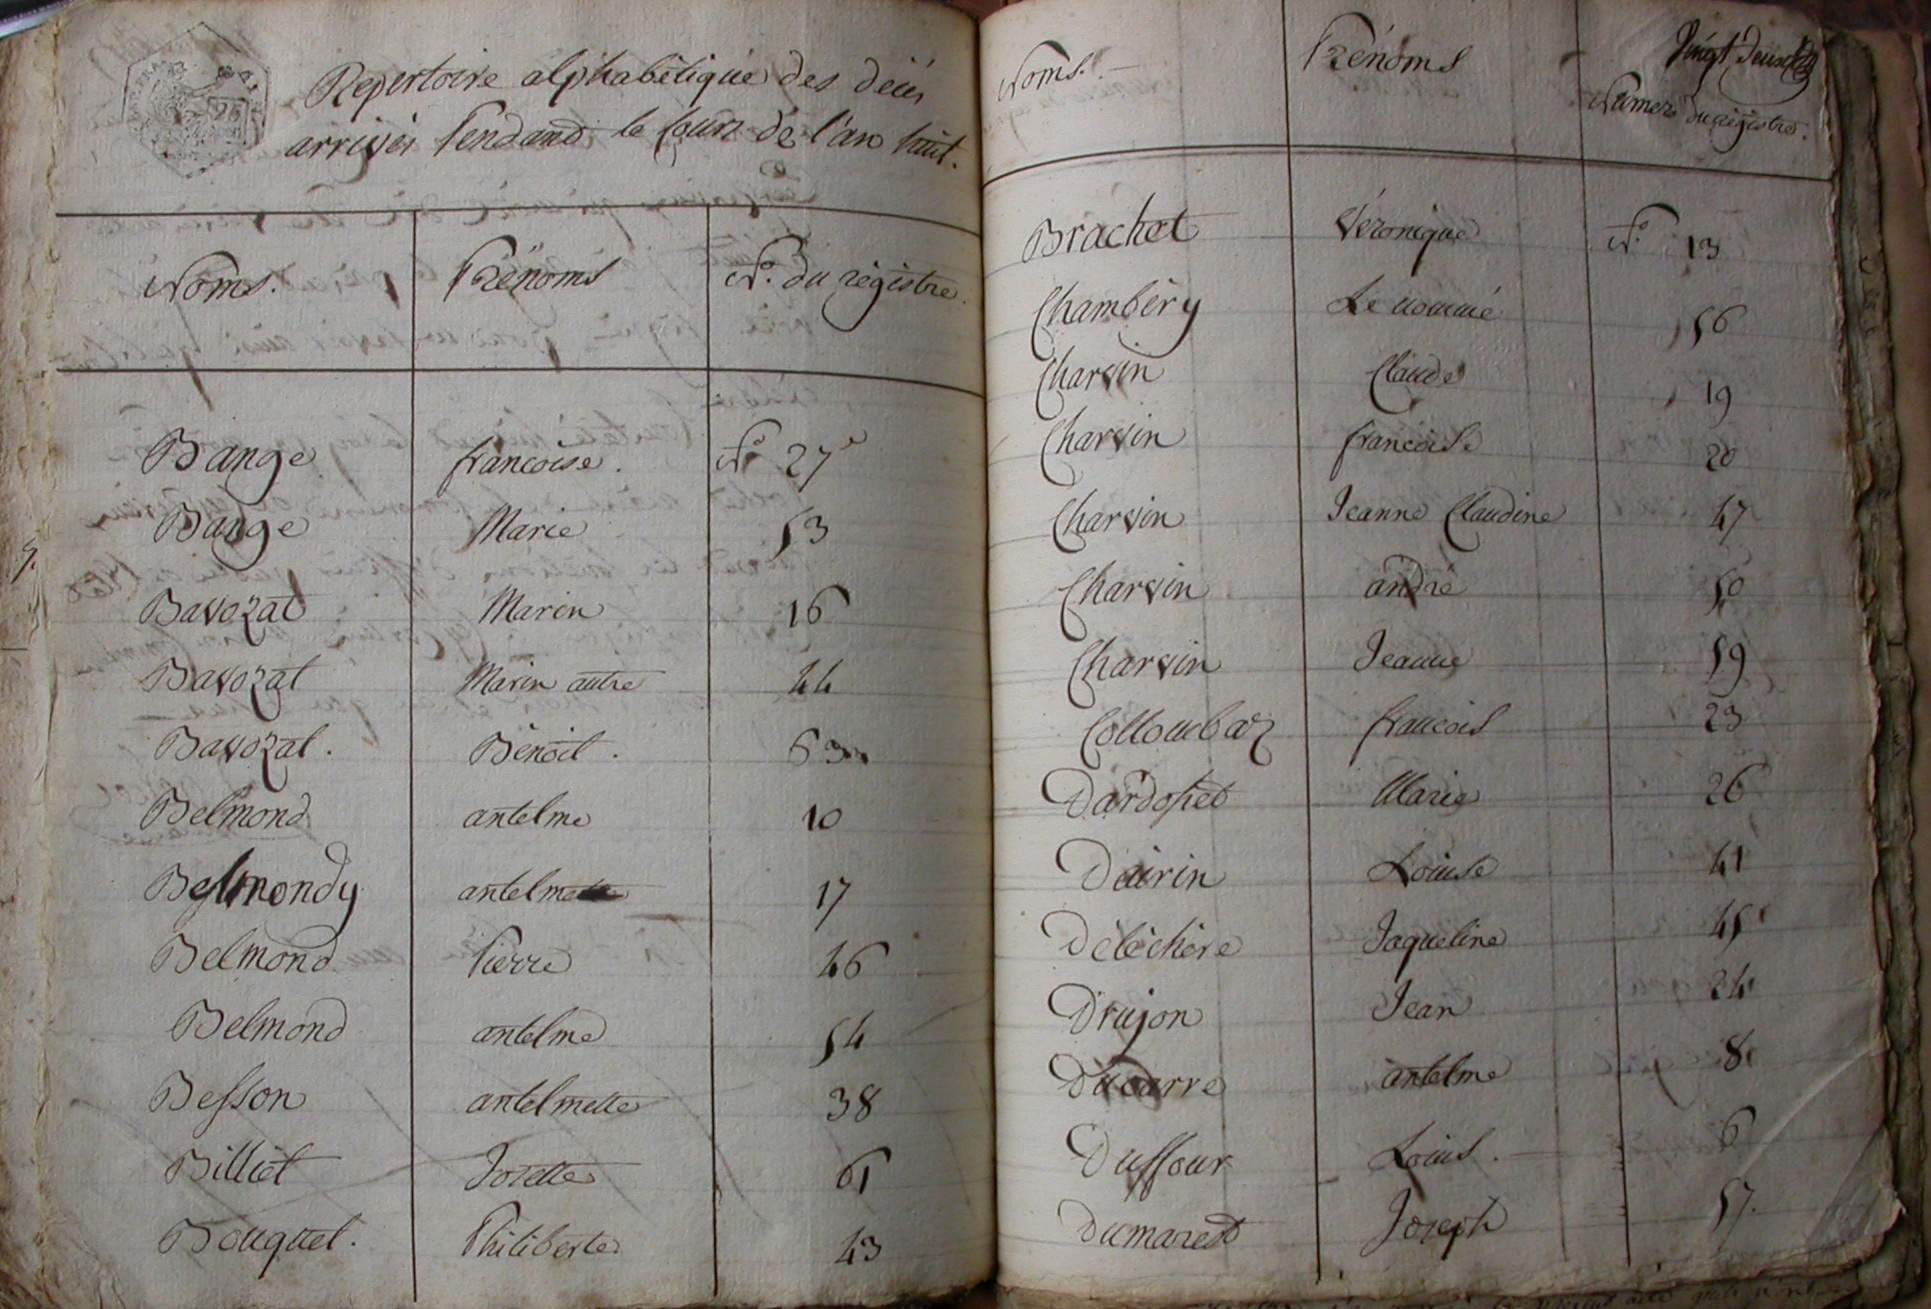 Repertoire alphabétique des décés
arrivés Pendand le Cours de l'an huit.
Noms. Prénoms N.º du régistre.
Bange francoise. Nº 27
Bange Marie 53
Bavozat Marin 16
Bavozat Marin autre 44
Bavozat. Benoit. 63
Belmond antelme 10
Belmondy antelme 17
Belmond Pierre 46
Belmond antelme 54
Besson antelmette 38
Billiet Josette 61
Bouquet. Philiberte 43
Vingt Deux
Noms. Prénoms Numero du régistre.
Brachet Véronique Nº 13
Chambéry Le nommé 56
Charvin Claude 19
Charvin francoise 20
Charvin Jeanne Claudine 47
Charvin andré 50
Charvin Jeanne 59
Colloubaz francois 23
Dardoset Marie 26
Dairin Louise 41
Deléchère Jaqueline 45
Drujon Jean 24
Ducarre antelme 8
Duffour Louis. 6
Dumarest Joseph 57.